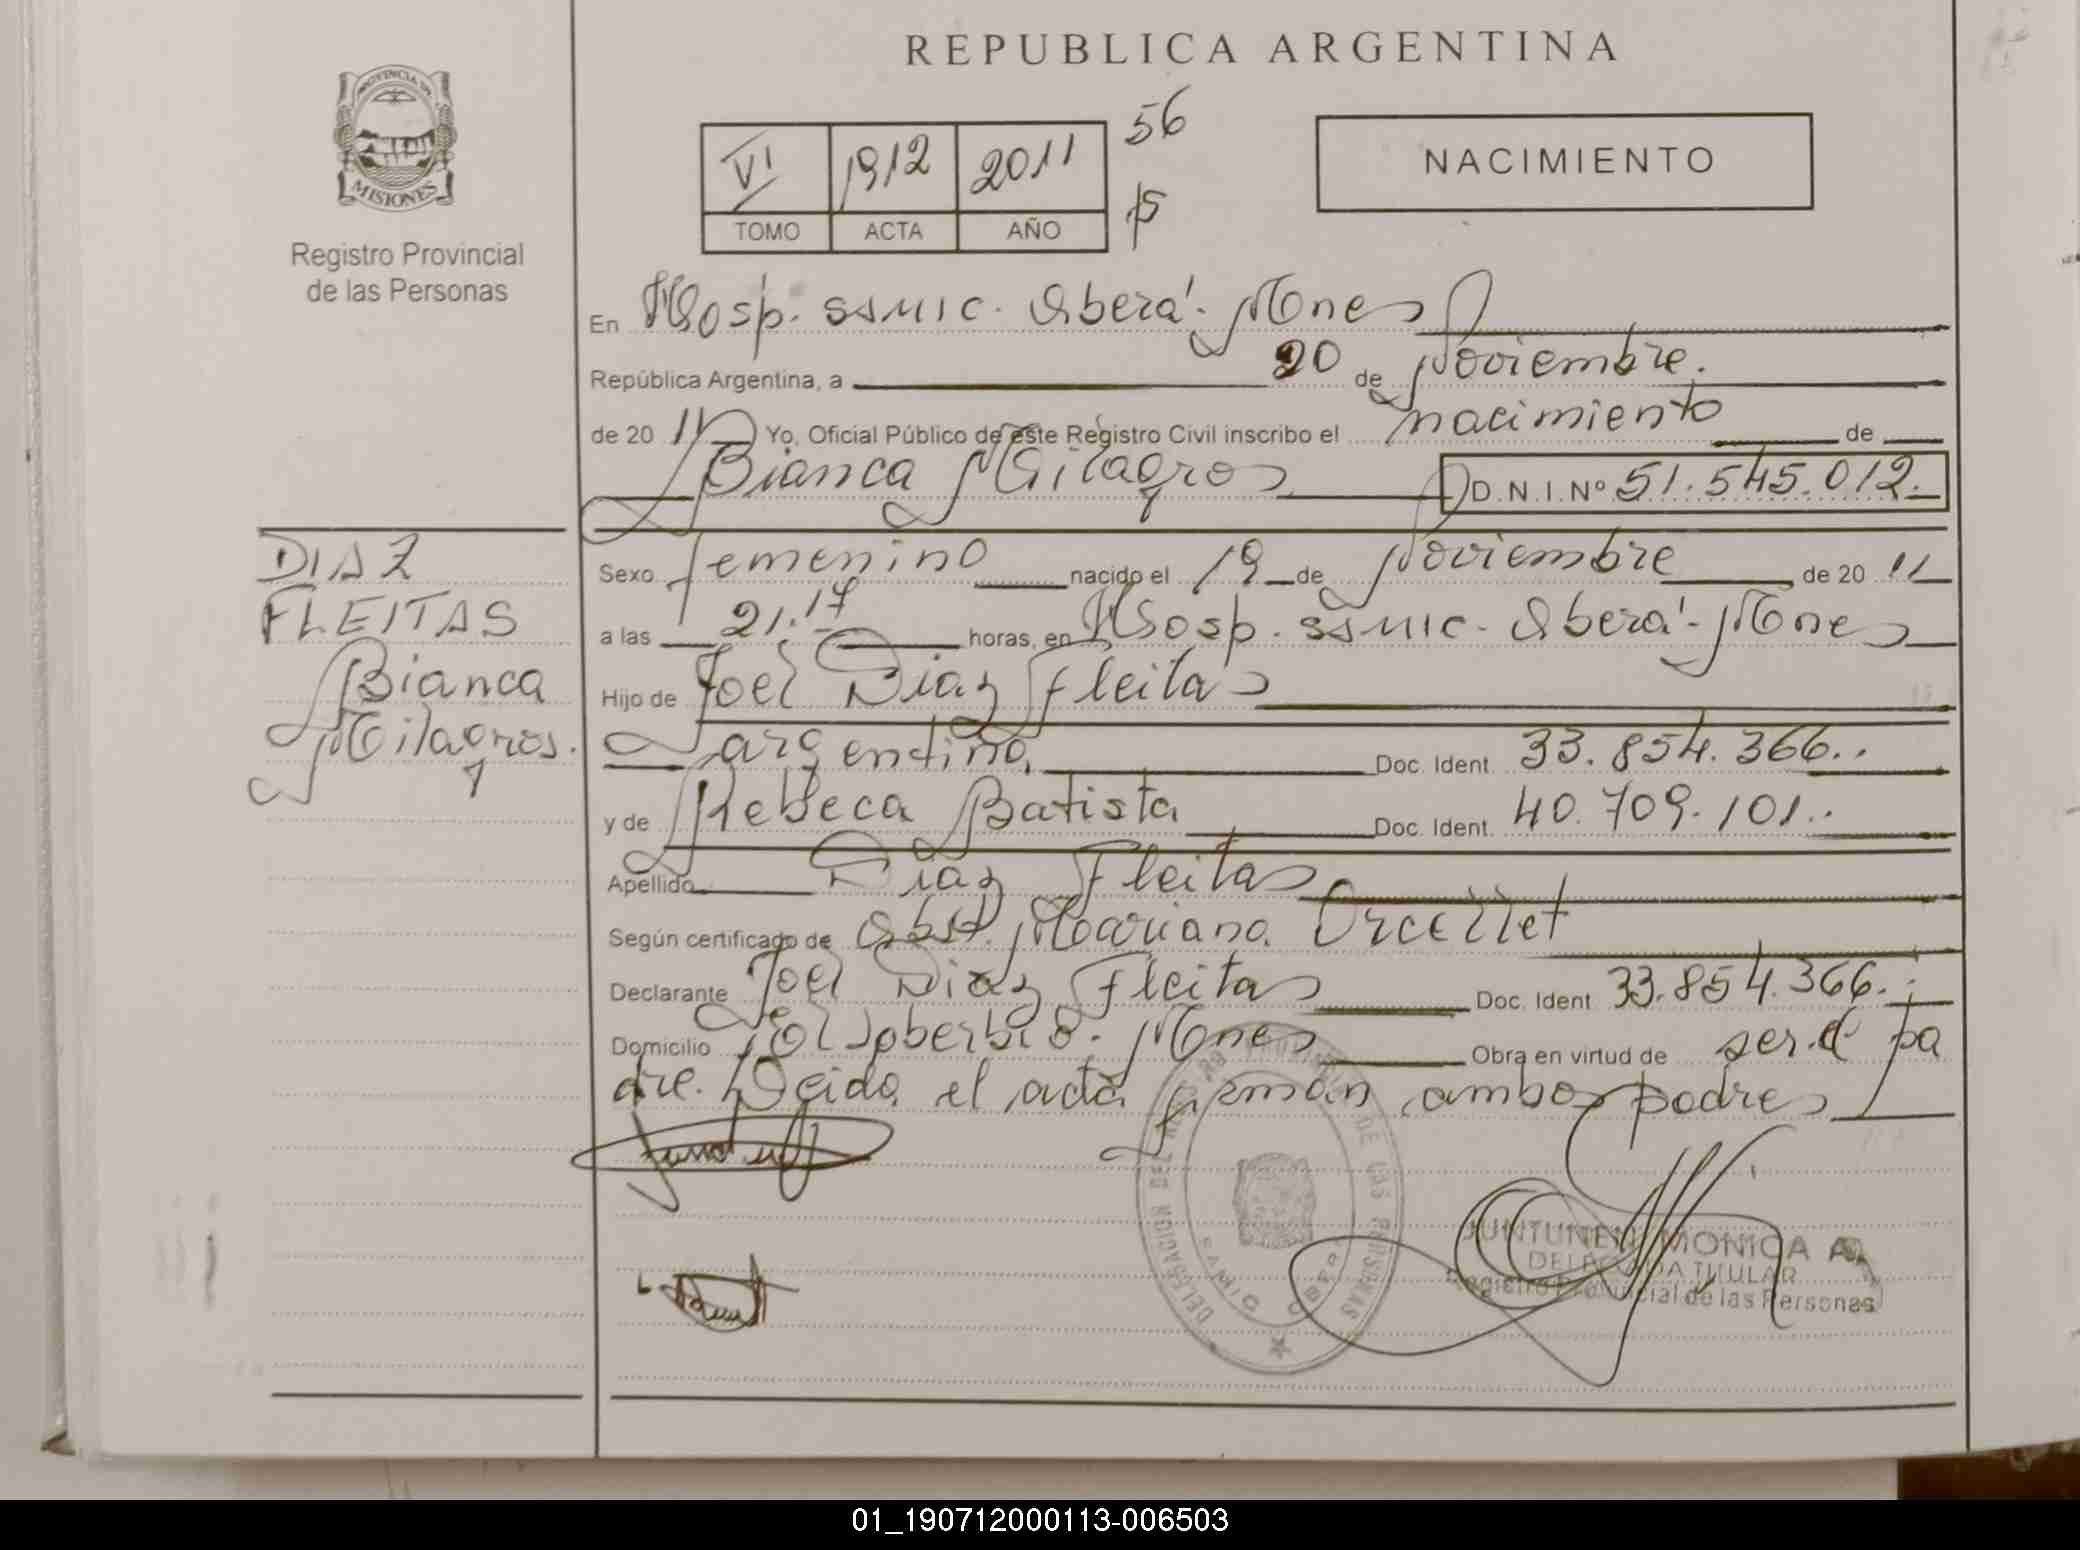 REPUBLICA ARGENTINA
PROVINCIA DE
MISIONES
Registro Provincial
de las Personas
VI 1912 2011
TOMO ACTA AÑO
56
NACIMIENTO
En Hosp. SAMIC. Oberá. Mnes
República Argentina, a 20 de Noviembre.
de 20 11 Yo, Oficial Público de este Registro Civil inscribo el nacimiento de
Bianca Milagros D.N.I.Nº 51.545.012.
DIAZ
FLEITAS
Bianca
Milagros.
Sexo femenino nacido el 19 de Noviembre de 20 11
a las 21.17 horas, en Hosp. SAMIC. Oberá. Mnes
Hijo de Joel Diaz Fleitas
argentino. Doc. Ident. 33.854.366..
y de Rebeca Batista Doc. Ident. 40.709.101..
Apellido Diaz Fleitas
Según certificado de Obst. Mariana Orcellet
Declarante Joel Diaz Fleitas Doc. Ident. 33.854.366..
Domicilio El Soberbio. Mnes Obra en virtud de ser el pa
dre. Leida el acta firman ambos padres
JUNTUNEN MONICA A.
DELEGADA TITULAR
Registro Provincial de las Personas
01_190712000113-006503